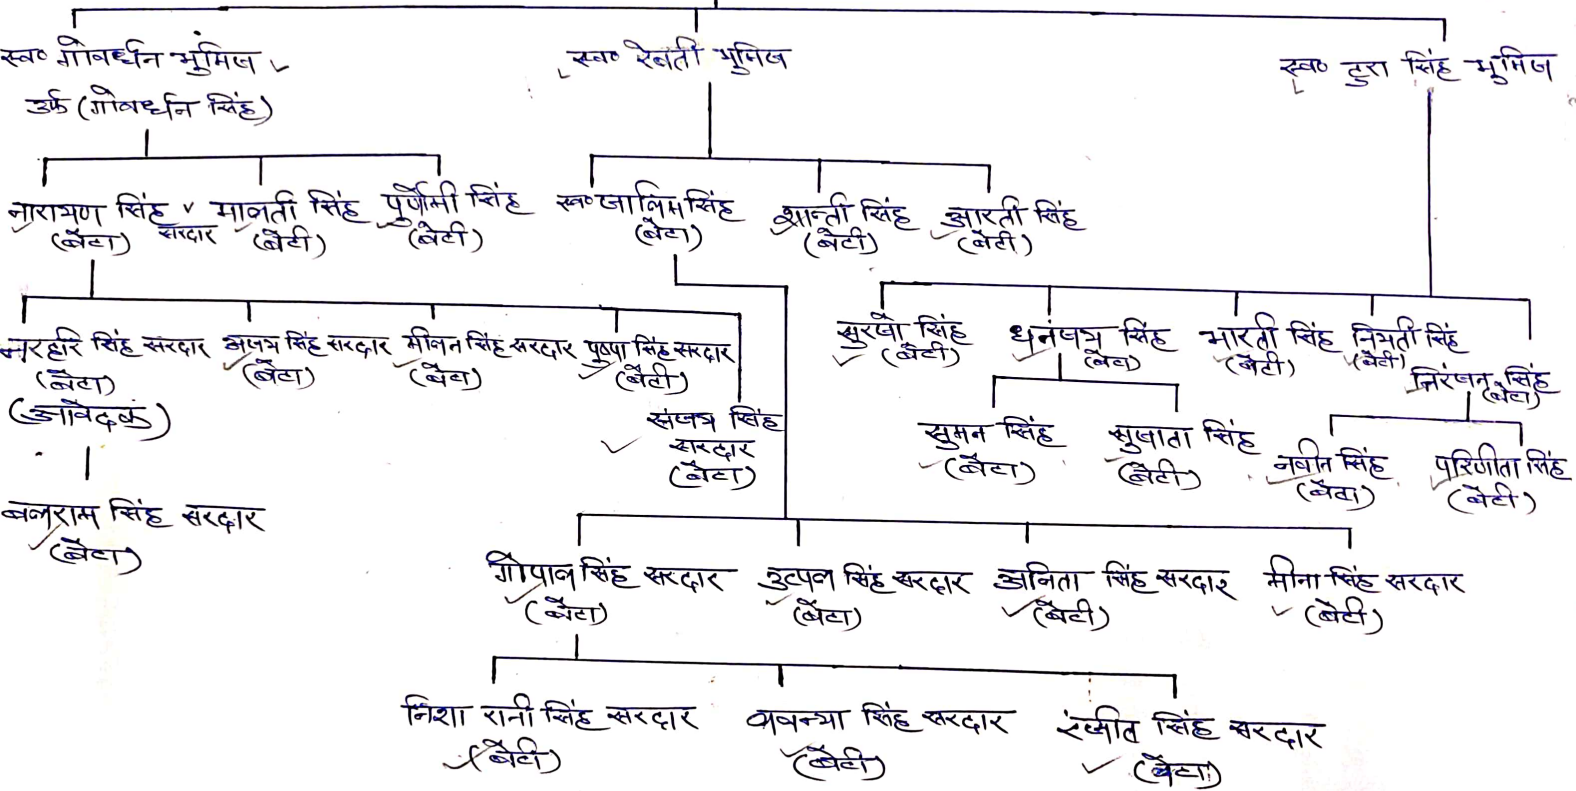 स्व० गोवर्धन भुमिज
स्व० रेवती भुमिज
स्व० टुरा सिंह भुमिज
उर्फ (गोवर्धन सिंह)
नारायण सिंह सरदार
(बेटा)
मालती सिंह
(बेटी)
पुर्णामी सिंह
(बेटी)
स्व० जालिम सिंह
(बेटा)
शान्ती सिंह
(बेटी)
आरती सिंह
(बेटी)
नरहरि सिंह सरदार
(बेटा)
(आवेदक)
अजय सिंह सरदार
(बेटा)
मीलन सिंह सरदार
(बेटा)
पुष्पा सिंह सरदार
(बेटी)
संजय सिंह
सरदार
(बेटा)
सुरजो सिंह
(बेटी)
धनंजय सिंह
(बेटा)
भारती सिंह
(बेटी)
नियती सिंह
(बेटी)
निरंजन सिंह
(बेटा)
सुमन सिंह
(बेटा)
सुजाता सिंह
(बेटी)
नवीन सिंह
(बेटा)
परिणीता सिंह
(बेटी)
बलराम सिंह सरदार
(बेटा)
गोपाल सिंह सरदार
(बेटा)
उत्पल सिंह सरदार
(बेटा)
अनिता सिंह सरदार
(बेटी)
मीना सिंह सरदार
(बेटी)
निशा रानी सिंह सरदार
(बेटी)
लावन्या सिंह सरदार
(बेटी)
रंजीत सिंह सरदार
(बेटा)